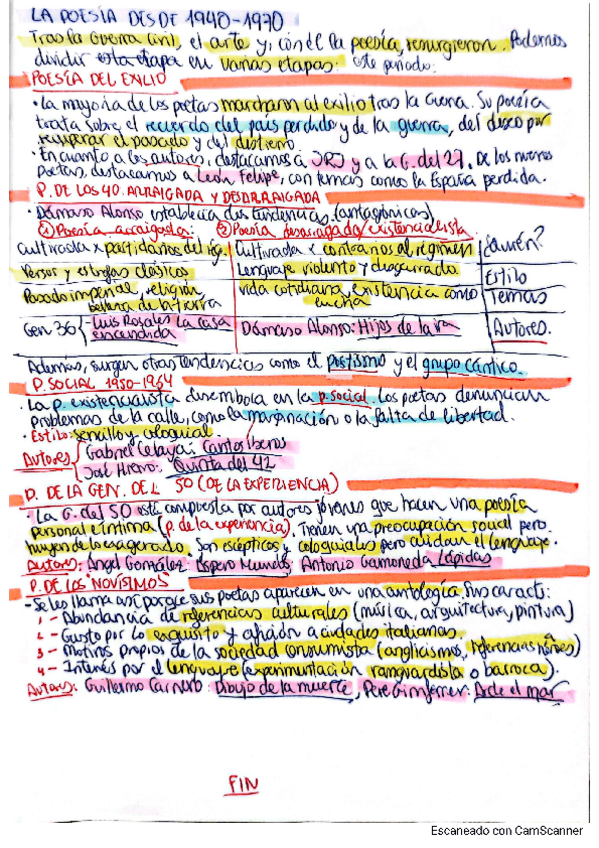 LA POESÍA DESDE 1940-1970
Tras la Guerra Civil, el arte y, con él la poesía, resurgieron. Podemos
dividir esta etapa en varias etapas: este periodo:
POESÍA DEL EXILIO
· La mayoría de los poetas marcharon al exilio tras la Guerra. Su poesía
trata sobre el recuerdo del país perdido y de la guerra, del deseo por
recuperar el pasado y del destierro.
· En cuanto a los autores, destacamos a JRJ y a la G. del 27. De los nuevos
poetas, destacamos a León Felipe, con temas como la España perdida.
P. DE LOS 40. ARRAIGADA Y DESARRAIGADA
· Dámaso Alonso establecía dos tendencias. (antagónicas)
① Poesía arraigada: ② Poesía desarraigada/existencialista
Cultivada x partidarios del rég. Cultivada x contrarios al régimen ¿Quién?
Versos y estrofas clásicos Lenguaje violento y desgarrado Estilo
Pasado imperial, religión, belleza de la tierra vida cotidiana, existencia como lucha Temas
Gen 36 Luis Rosales La casa encendida Dámaso Alonso: Hijos de la ira Autores.
Además, surgen otras tendencias como el postismo y el grupo cántico.
P. SOCIAL 1950-1964
· La p. existencialista desemboca en la p. social. Los poetas denuncian
problemas de la calle, como la marginación o la falta de libertad.
· Estilo: sencillo y coloquial.
Autores Gabriel Celaya: Cantos Íberos
José Hierro: Quinta del 42
P. DE LA GEN. DE L 50 (DE LA EXPERIENCIA)
· La G. del 50 está compuesta por autores jóvenes que hacen una poesía
personal e íntima (p. de la experiencia). Tienen una preocupación social pero
huyen de lo exagerado. Son escépticos y coloquiales pero cuidan el lenguaje.
Autores: Ángel González: Áspero Mundo; Antonio Gamoneda Lápidas
P. DE LOS "NOVÍSIMOS"
- Se les llama así porque sus poetas aparecen en una antología. Sus caract:
1 - Abundancia de referencias culturales (música, arquitectura, pintura)
2 - Gusto por lo exquisito y afición a ciudades italianas.
3 - Motivos propios de la sociedad consumista (anglicismos, referencias)
4 - Interés por el lenguaje (experimentación vanguardista o barroca).
Autores: Guillermo Carnero: Dibujo de la muerte, Pere Gimferrer: Arde el mar
FIN
Escaneado con CamScanner